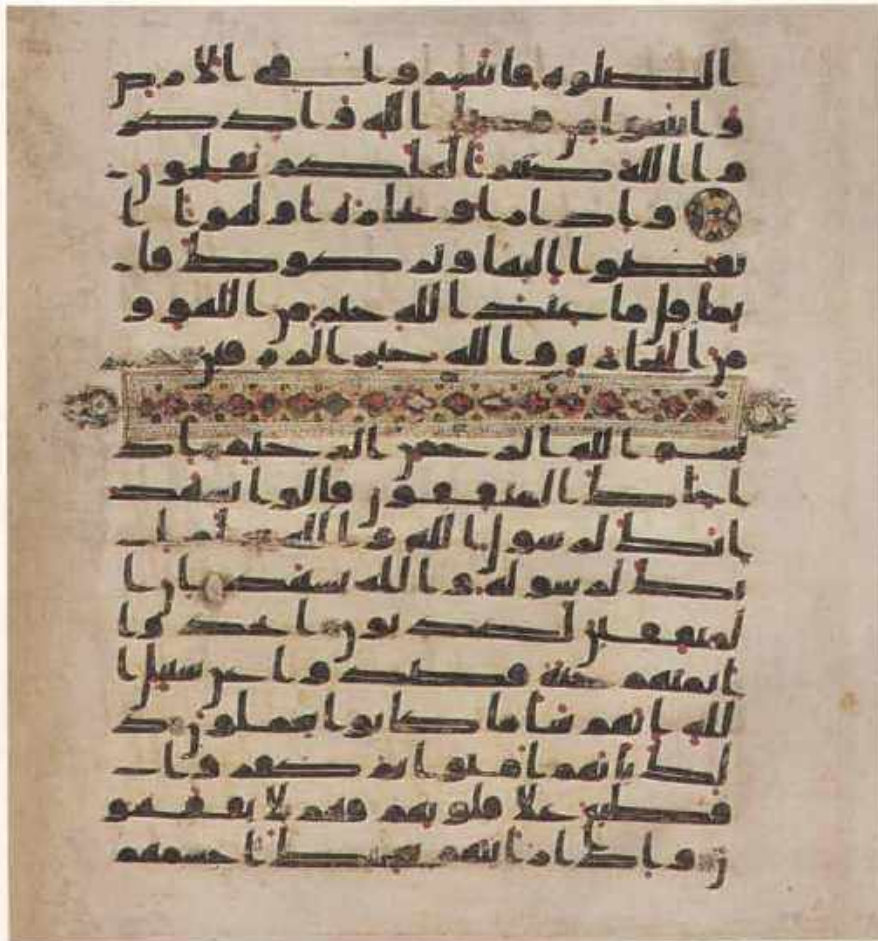 الصلوة فانتشروا في الارض
وابتغوا من فضل الله واذكر
وا الله كثيرا لعلكم تفلحون
واذا راوا تجارة او لهوا ا
نفضوا اليها وتركوك قا
ئما قل ما عند الله خير من اللهو و
من التجارة والله خير الرزقين
بسم الله الرحمن الرحيم اذ
ا جاك المنفقون قالوا نشهد
انك لرسول الله والله يعلم ا
نك لرسوله والله يشهد ان ا
لمنفقين لكذبون اتخذوا
ايمنهم جنة فصدوا عن سبيل ا
لله انهم سا ما كانوا يعملون ذ
لك بانهم امنوا ثم كفروا
فطبع علا قلوبهم فهم لا يفقهو
ن واذا رايتهم تعجبك اجسمهم